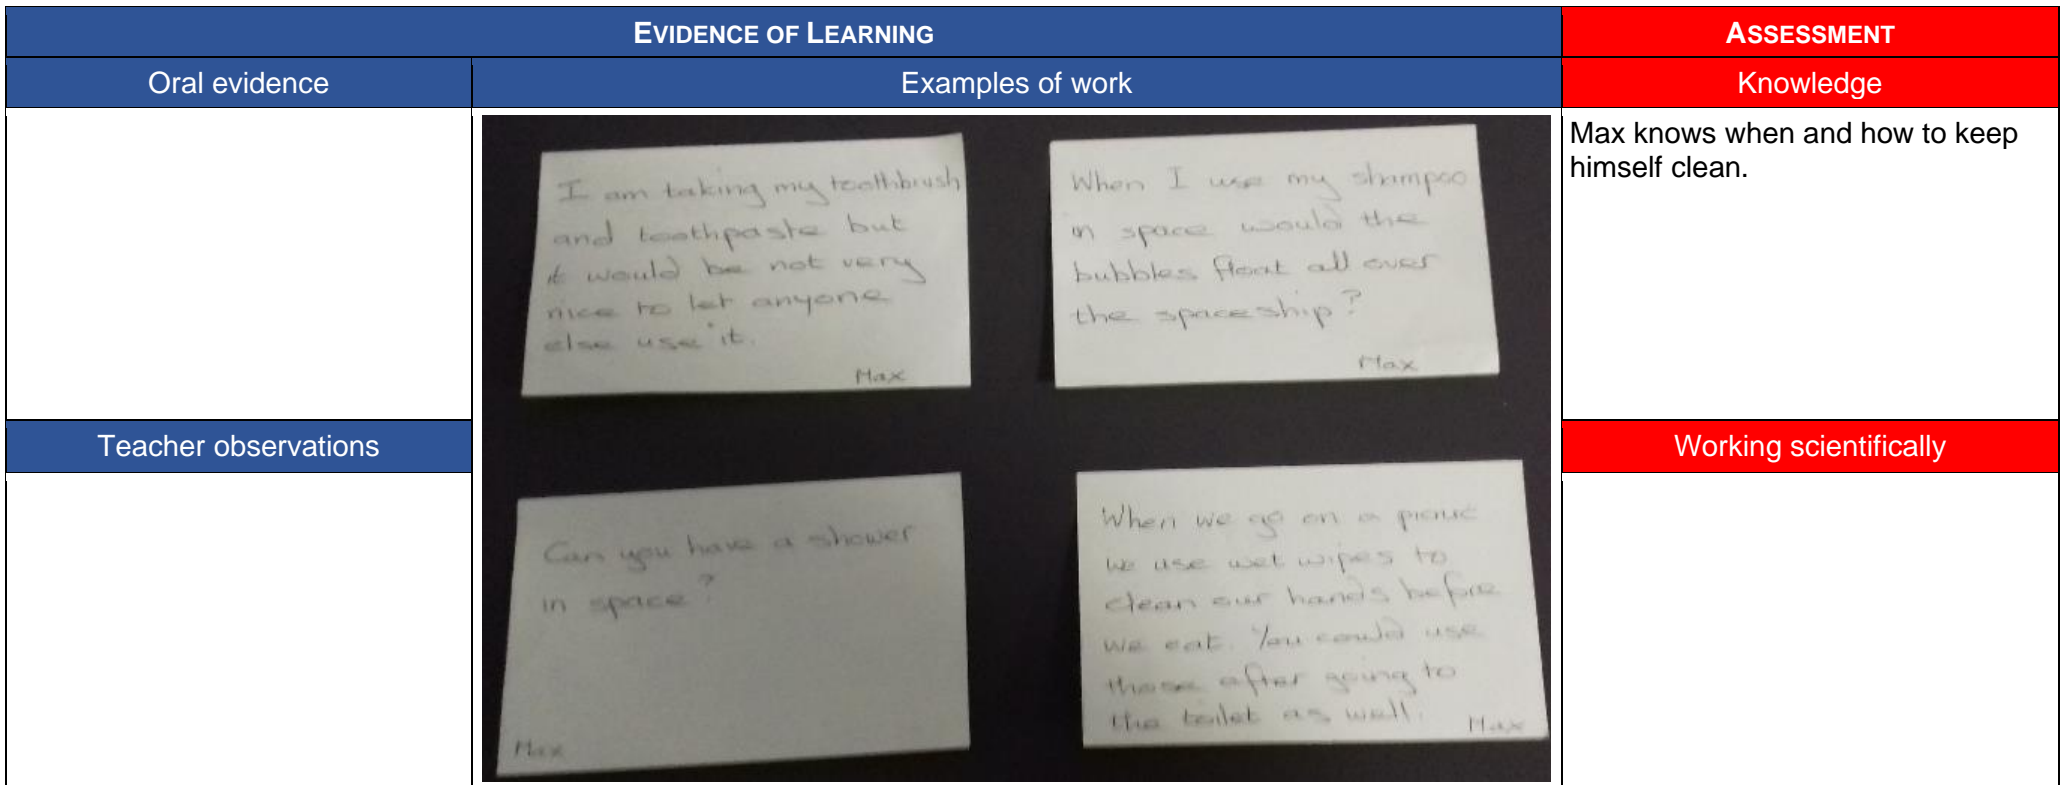 EVIDENCE OF LEARNING
ASSESSMENT
Oral evidence
Examples of work
Knowledge
I am taking my toothbrush
and toothpaste but
it would be not very
nice to let anyone
else use it.
Max
When I use my shampoo
in space would the
bubbles float all over
the spaceship?
Max
Max knows when and how to keep
himself clean.
Teacher observations
Working scientifically
Can you have a shower
in space?
Max
When we go on a picnic
we use wet wipes to
clean our hands before
we eat. You could use
those after going to
the toilet as well.
Max